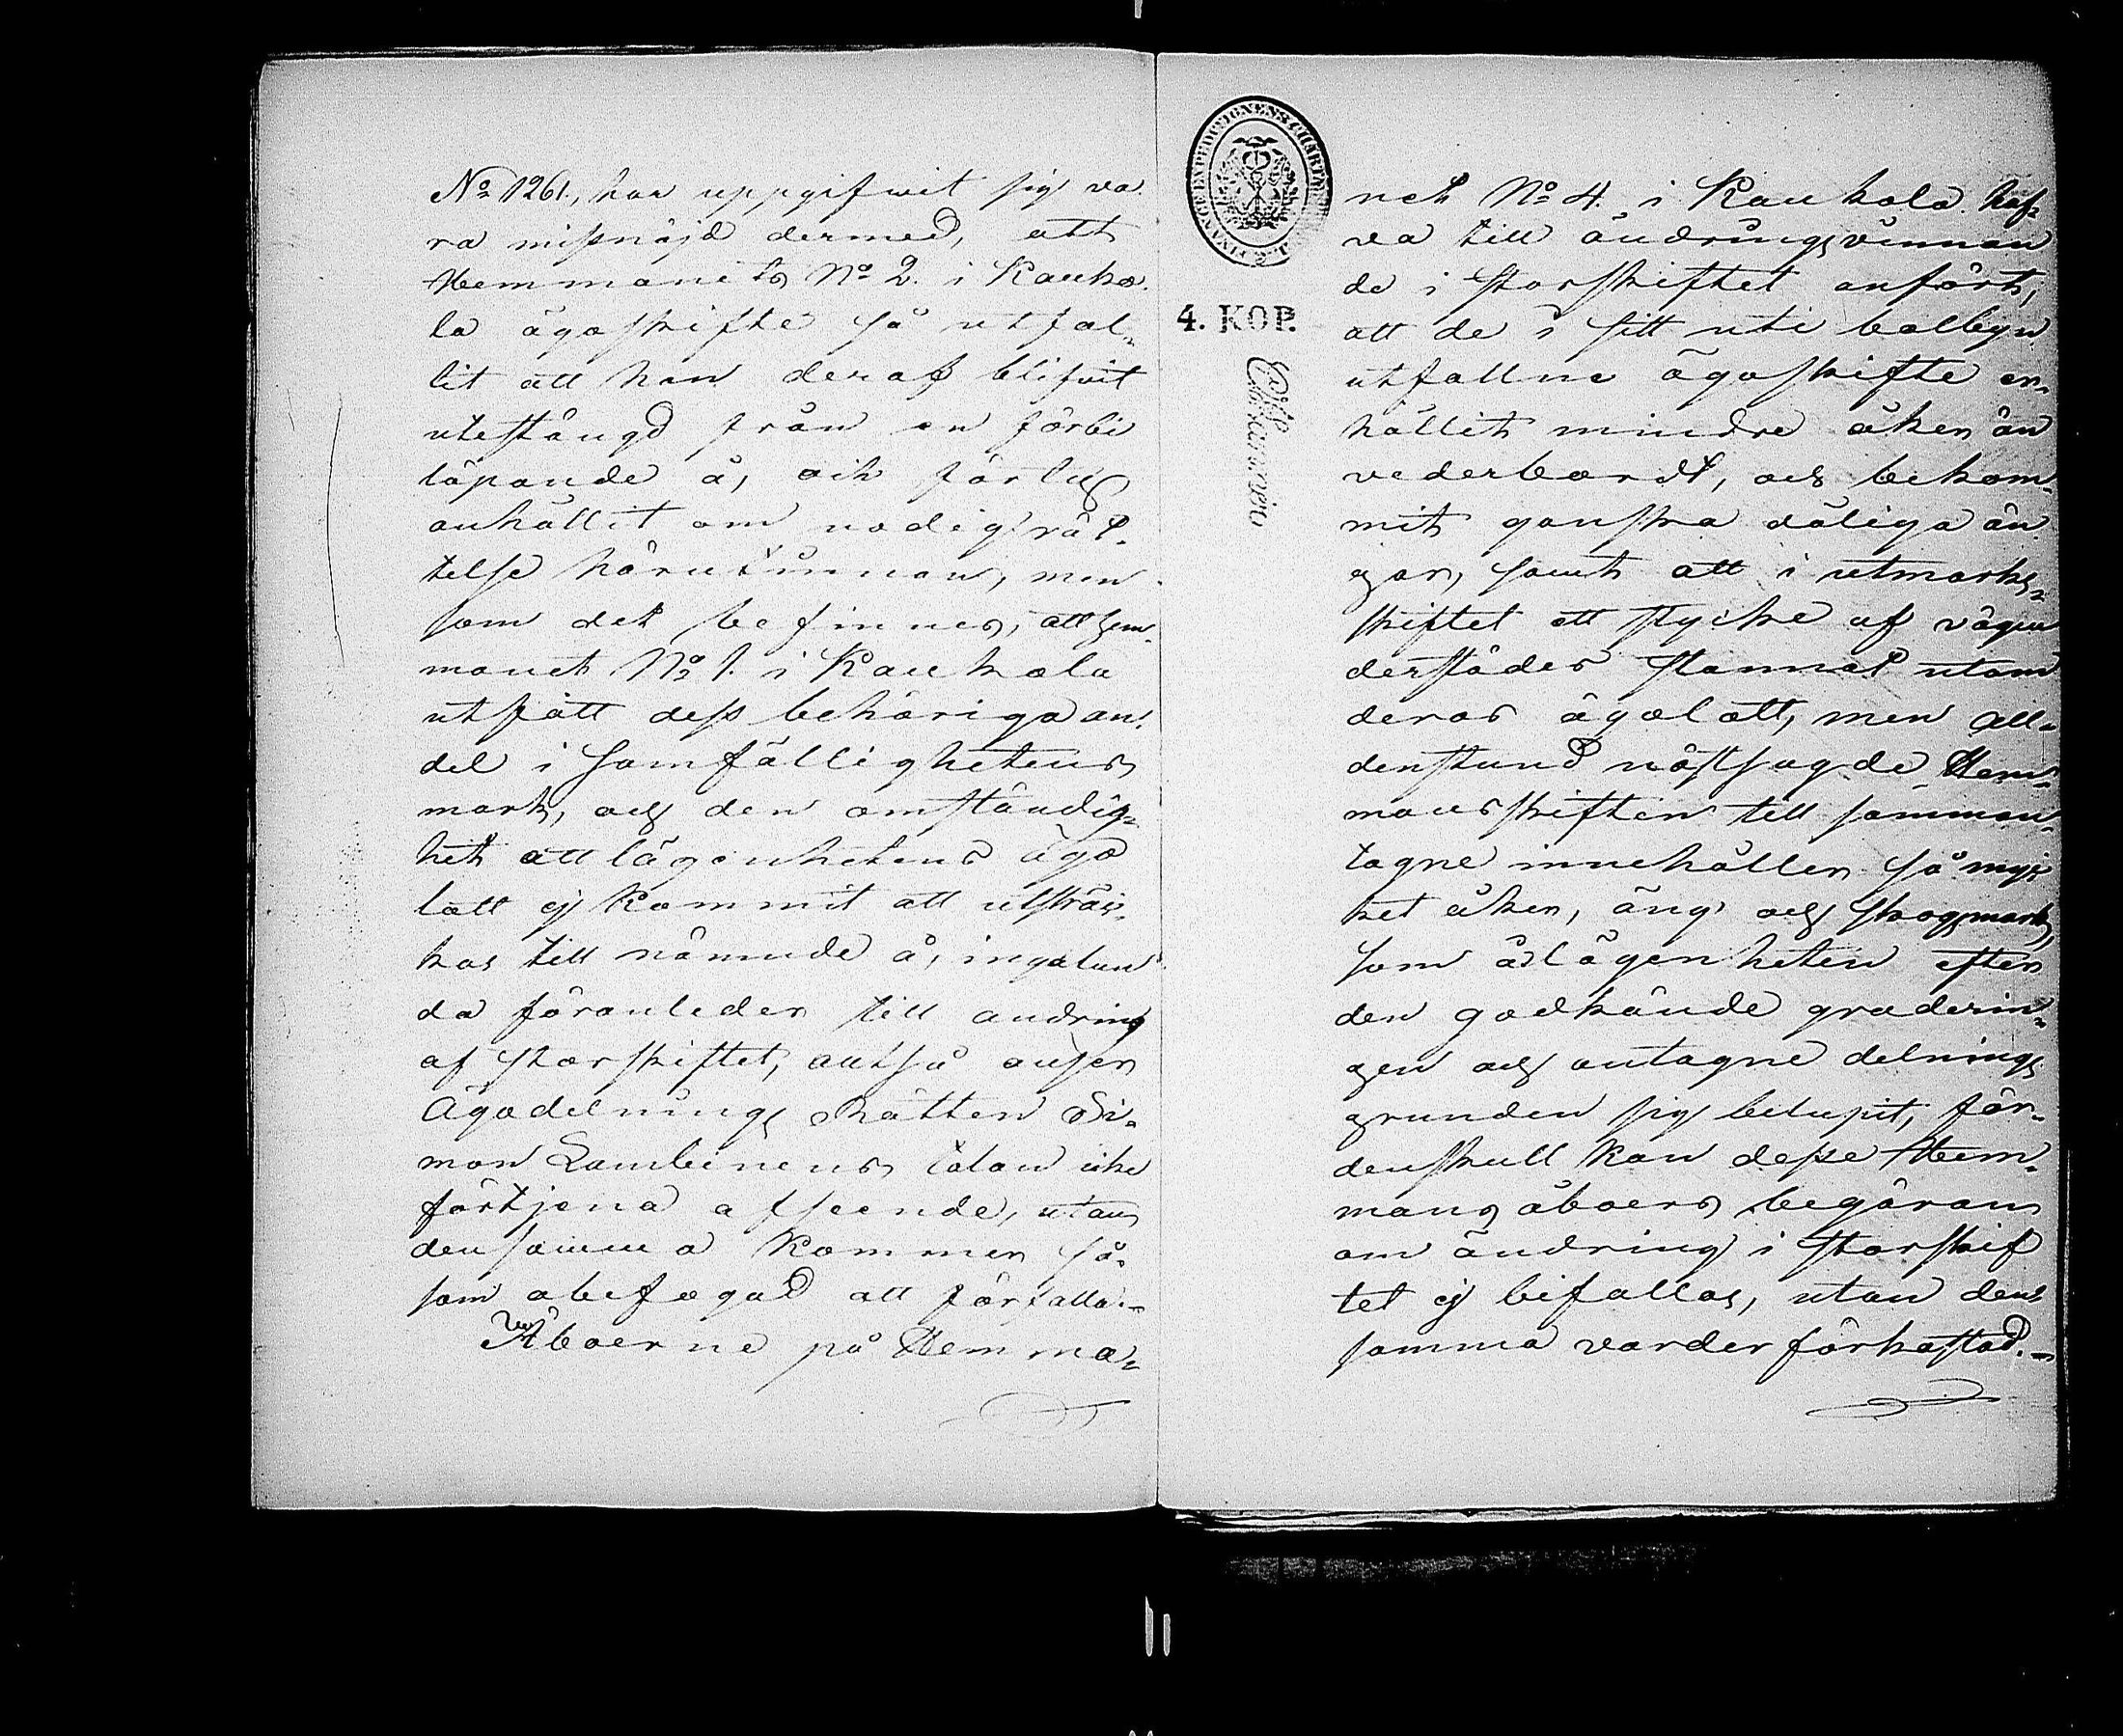 No 1261., har uppgifwit sig va-
ra missnöjd dermed, att
Hemmanets No 2. i Rauko-
la ägoskifte så utfal-
lit att han deraf blifvit
utestängd från en förbi
löpande å, och förty
anhållit om nödig rät-
telse härutinnan, men
som det befinnes, att hem-
manet No 1. i Raukola
utfått dess behöriga an-
del i Samfällighetens
mark, och den omständig-
het att lägenhetens ägo
lott ej kommit att utsträc-
kas till nämnde å, ingalun-
da föranleder till ändring
af storskiftet, altså anser
Ägodelnings Rätten Si-
mon Lambinens talan icke
förtjena afseende, utan
densamma kommer så-
som obefogad att förfalla.-
Åboerne på Hemma-
FINANCE EXPEDITIONENS CHARTÆ
4. KOP.
net No 4. i Raukola haf-
va till ändrings vinnan-
de i storskiftet anfört,
att de i sitt uti bolbyn
utfallne ägoskifte er-
hållit mindre åker än
vederbordt, och bekom-
mit ganska dåliga än-
gar, samt att i utmarks-
skiftet ett stycke af vägen
derstädes stannat utom
deras ägolott, men all-
denstund näst sagde Hem-
mansskiften till samman-
tagne innehåller så myc-
ket åker, äng och skogsmark,
som å lägenheten efter
den godkände graderin-
gen och antagne delnings
grunden sig belupit, för-
denskull kan desse Hem-
mans åboers begäran
om ändring i storskif-
tet ej bifallas, utan den-
samma varder förkastad.-